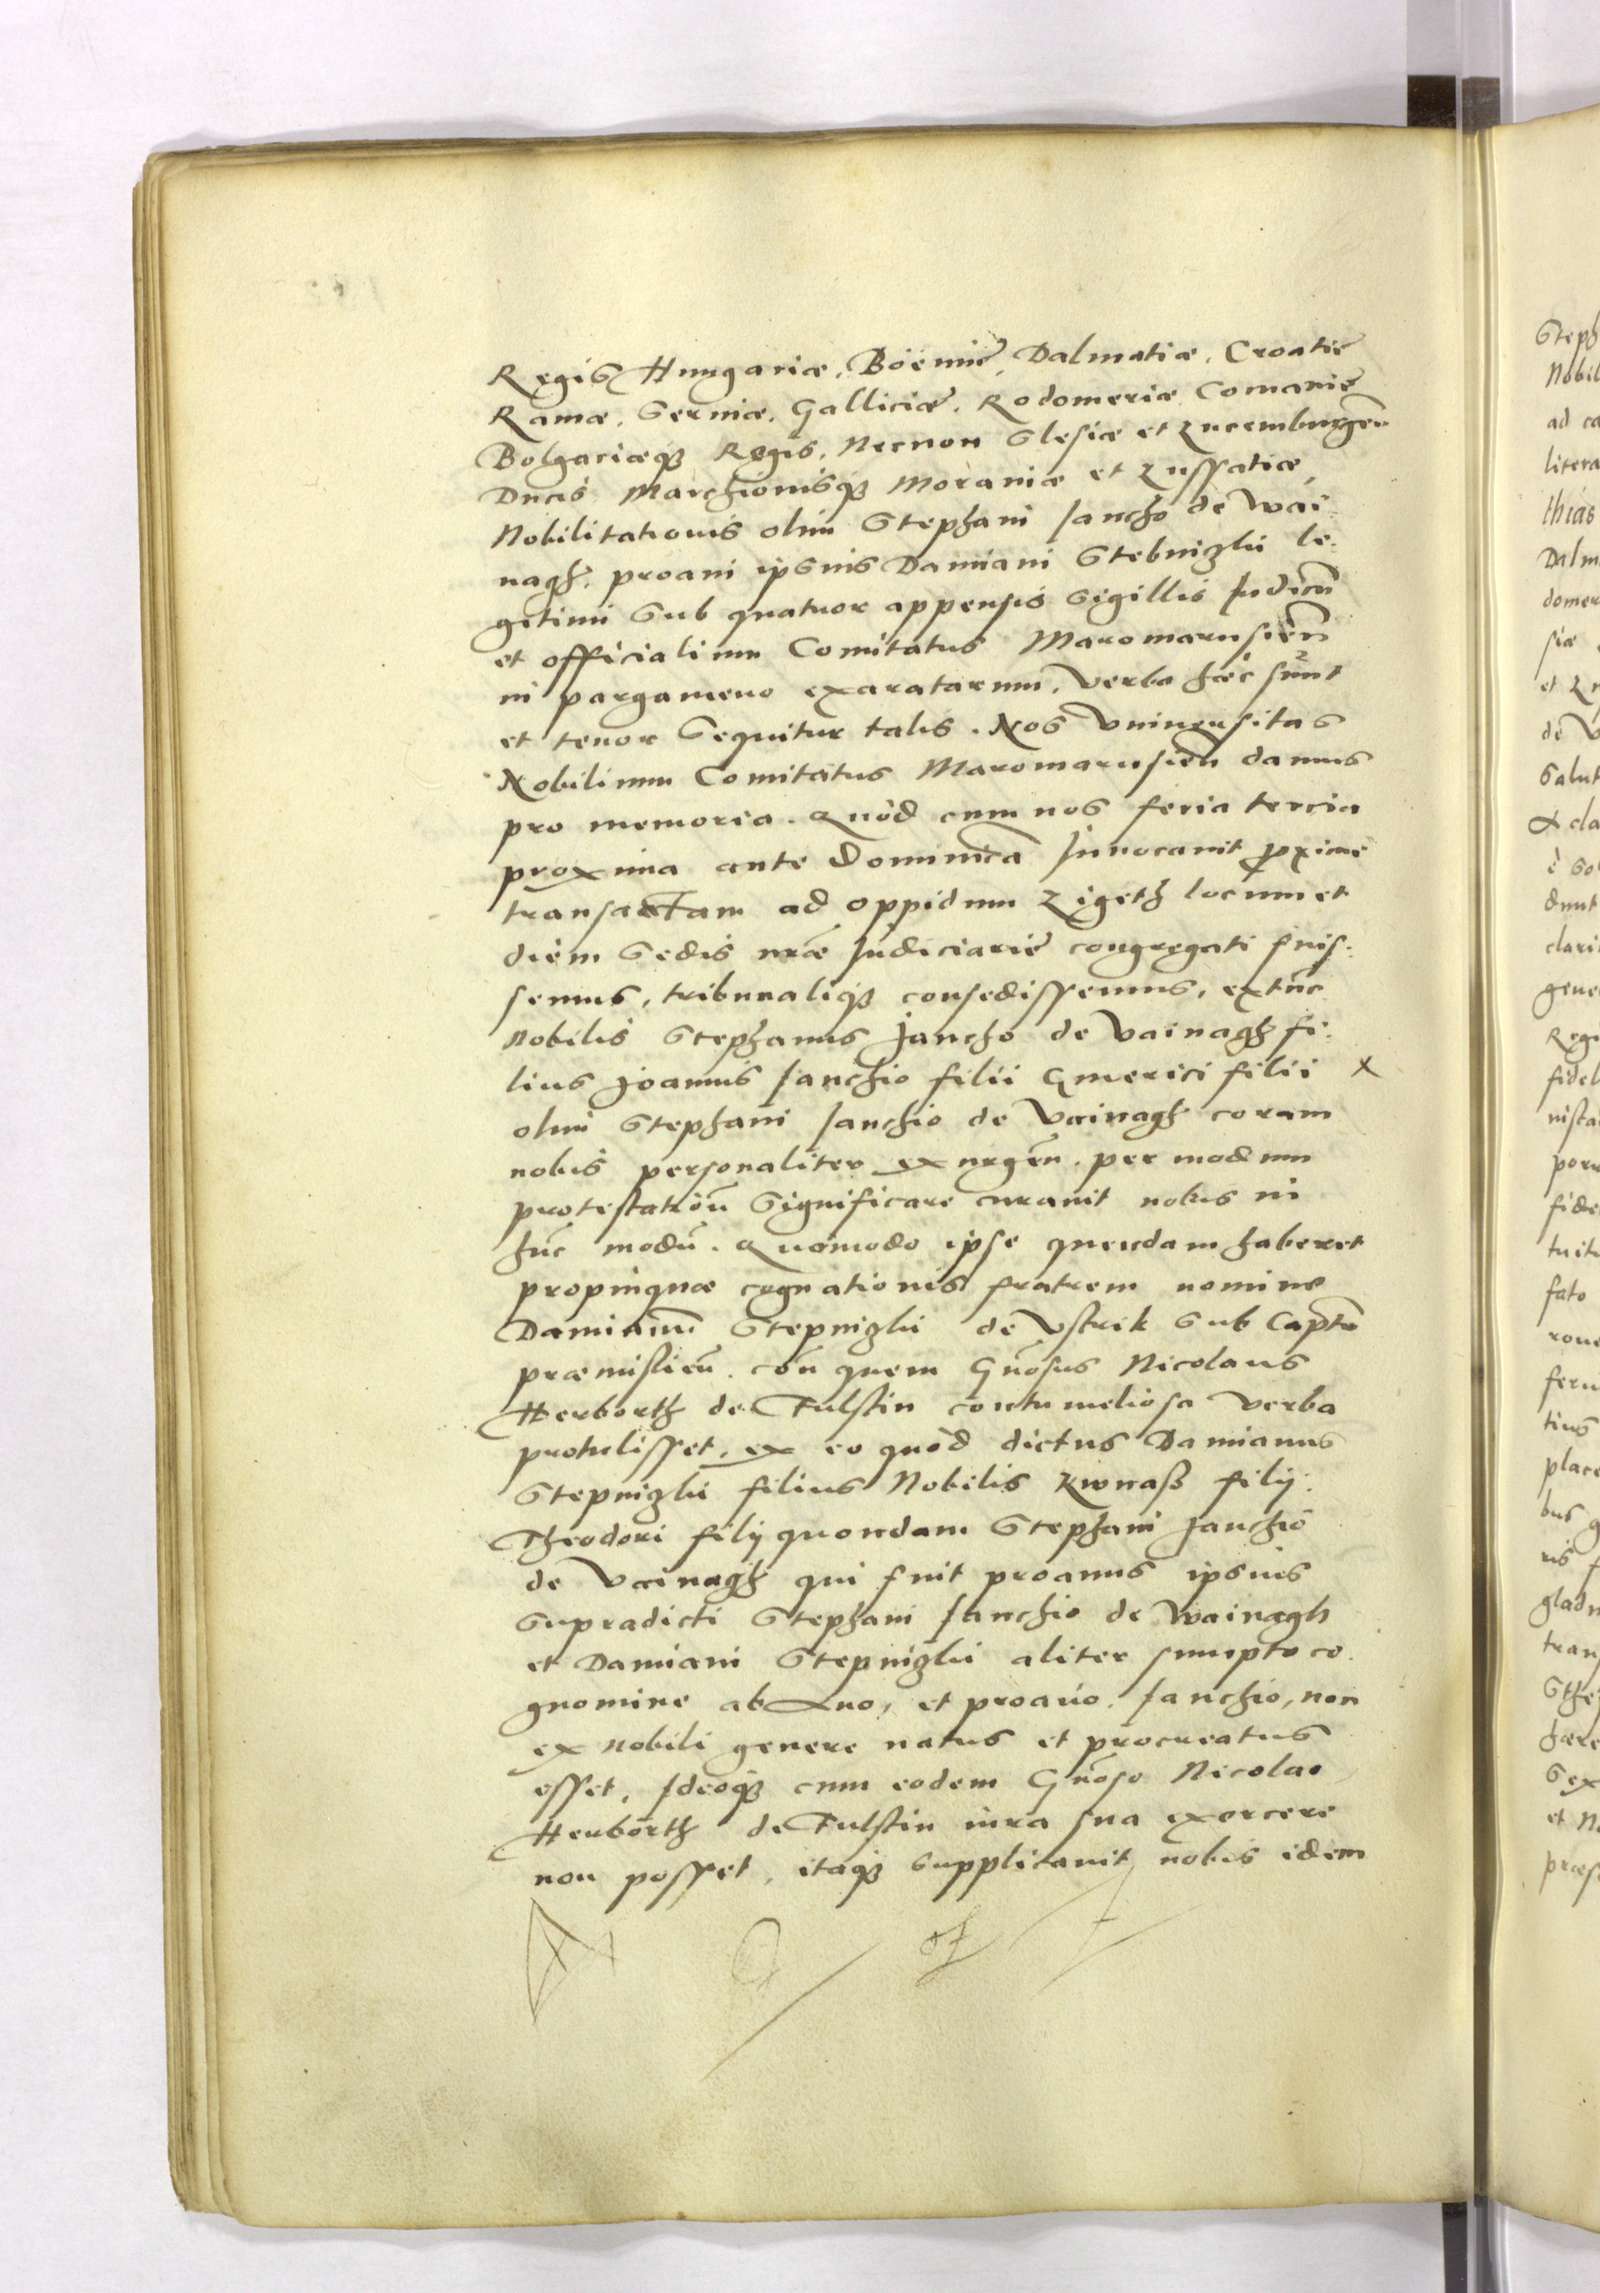 Regis Hungariæ, Boemię, Dalmatiæ, Croatię
Ramæ, Serviæ, Galliciæ, Rodomeriæ Comanię
Bolgariæqȝ Regis, Necnon Slesiæ et Lucemburgeñ
Ducis Marchionisqȝ Moraviæ et Lussatiæ,
Nobilitationis olim Stephani Jancho de Wai-
nagh, proavi ipsius Damiani Stebnizki le-
gitimi sub quatuor appensis sigillis Judicũ
et officialium Comitatus Maromarusień
in pargameno exaratarum, Verba hæc sunt
et tenor sequitur talis. Nos Vniuersitas
Nobilium Comitatus Maromarusień damus
pro memoria. Quod cum nos feria tercia
proxima ante Dominicã Inuocauit proxime
transactam ad oppidum Zigeth locum et
diem Sedis nr̃æ Judiciarię congregati fuis-
semus, tribunaliqȝ consedissemus, extunc
Nobilis Stephanus Jancho de Vainagh fi-
lius Joannis Janchio filii Emerici filii x
olim Stephani Janchio de Vainagh coram
nobis personaliter exurgeñ. per modum
protestatioñ significare curauit nobis in
hũc modũ. Quomodo ipse quendam haberet
propinquæ cognationis fratrem nomine
Damianum Stepnizki de Vstrik sub Capt̃u
præmislień. con̄ quem Gñosus Nicolaus
Herborth de Fulstin contumeliosa verba
protulisset, ex eo quod dictus Damianus
Stepnizki filius Nobilis Kwnaß filij
Theodori filij quondam Stephani Janchio
de Vainagh qui fuit proauus ipsius
supradicti Stephani Janchio de Wainagh
et Damiani Stepnizki aliter sumpto co-
gnomine ab Auo, et proauo Janchio, non
ex nobili genere natus et procreatus
esset, Ideoqȝ cum eodem Gñoso Nicolao
Herborth de Fulstin iura sua exercere
non posset, itaqȝ supplicauit nobis idem